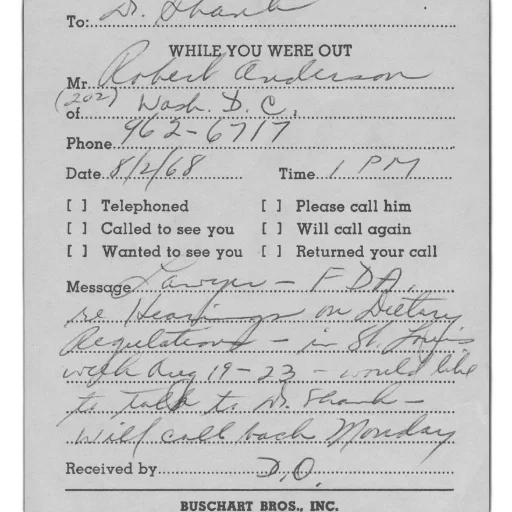 To: Dr. Shank
WHILE YOU WERE OUT
Mr Robert Anderson
(202)
of Wash. D. C.
Phone 962-6717
Date 8/2/68 Time 1 PM
[ ] Telephoned [ ] Please call him
[ ] Called to see you [ ] Will call again
[ ] Wanted to see you [ ] Returned your call
Message Lawyer - FDA,
re Hearings on Dietary
Regulations - in St. Louis
week Aug 19-23 - would like
to talk to Dr. Shank -
will call back Monday
Received by D.O.
BUSCHART BROS., INC.